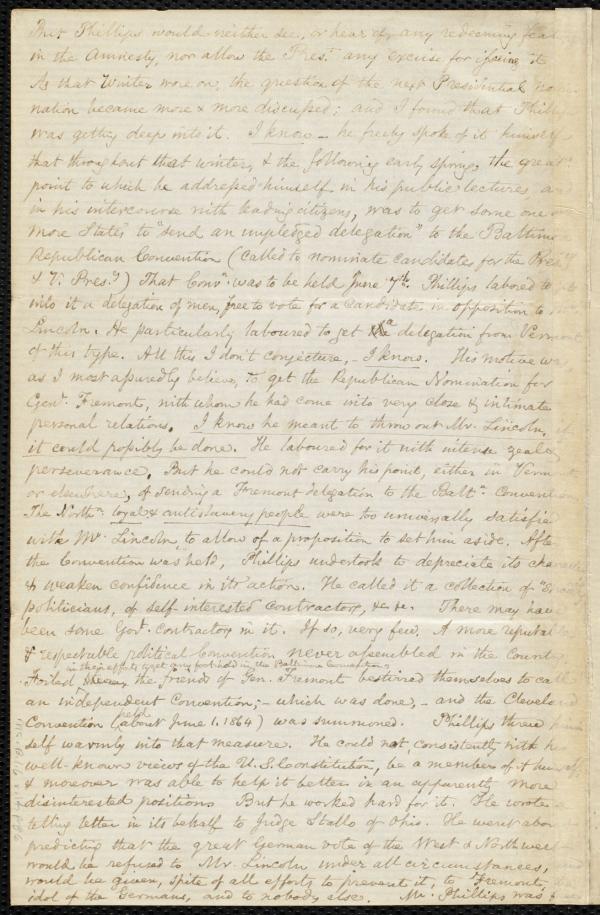 But Phillips would neither see, or hear of, any redeeming feat
in the Amnesty, nor allow the Prest. any excuse for issuing it.
As that Winter wore on, the question of the next Presidential nomi-
nation became more & more discussed; and I found that Phillip
was getting deep into it. I know – he freely spoke of it himself
that throughout that winter, & the following early spring, the great
point to which he addressed himself in his public lectures, and
in his intercourse with leading citizens, was to get some one or
more States to "send an unpledged delegation" to the Baltimore
Republican Convention (called to nominate candidates for the Pres.
& V. Pres.y) That Convn. was to be held June 7th. Phillips labored to
into it a delegation of men, free to vote for a candidate in opposition to
Lincoln. He particularly laboured to get a delegation from Vermont
of this type. All this I don't conjecture, – I know. His motive was
as I most assuredly believe, to get the Republican Nomination for
Genl. Fremont, with whom he had come into very close & intimate
personal relations. I know he meant to throw out Mr. Lincoln, if
it could possibly be done. He laboured for it with intense zeal &
perseverance. But he could not carry his point, either in Vermont
or elsewhere, of sending a Fremont delegation to the Balt.o Convention
The Northn. loyal & antislavery people were too universally satisfied
with Mr. Lincoln to allow of a proposition to set him aside. After
the Convention was held, Phillips undertook to depreciate its charac
& weaken confidence in its action. He called it a collection of
politicians, of self interested contractors, &c &c. There may have
been some Govt. contractors in it. If so, very few. A more reputable
& respectable political Convention never assembled in the Country
in their efforts to get any foothold in the Baltimore Convention,
Foiled, the friends of Gen. Fremont bestirred themselves to call
an independent Convention; – which was done, – and the Cleveland
held
Convention (about June 1. 1864) was summoned. Phillips threw him
self warmly into that measure. He could not, consistently with h
well-known views of the U.S. Constitution, be a member of it himself
& moreover was able to help it better in an apparently more
disinterested position. But he worked hard for it. He wrote a
telling letter in its behalf to Judge Stallo of Ohio. He went abou
predicting that the great German vote of the West & Northwest
would be refused to Mr. Lincoln under all circumstances,
would be given, spite of all efforts to prevent it, to Fremont,
idol of the Germans, and to nobody else. Mr. Phillips was